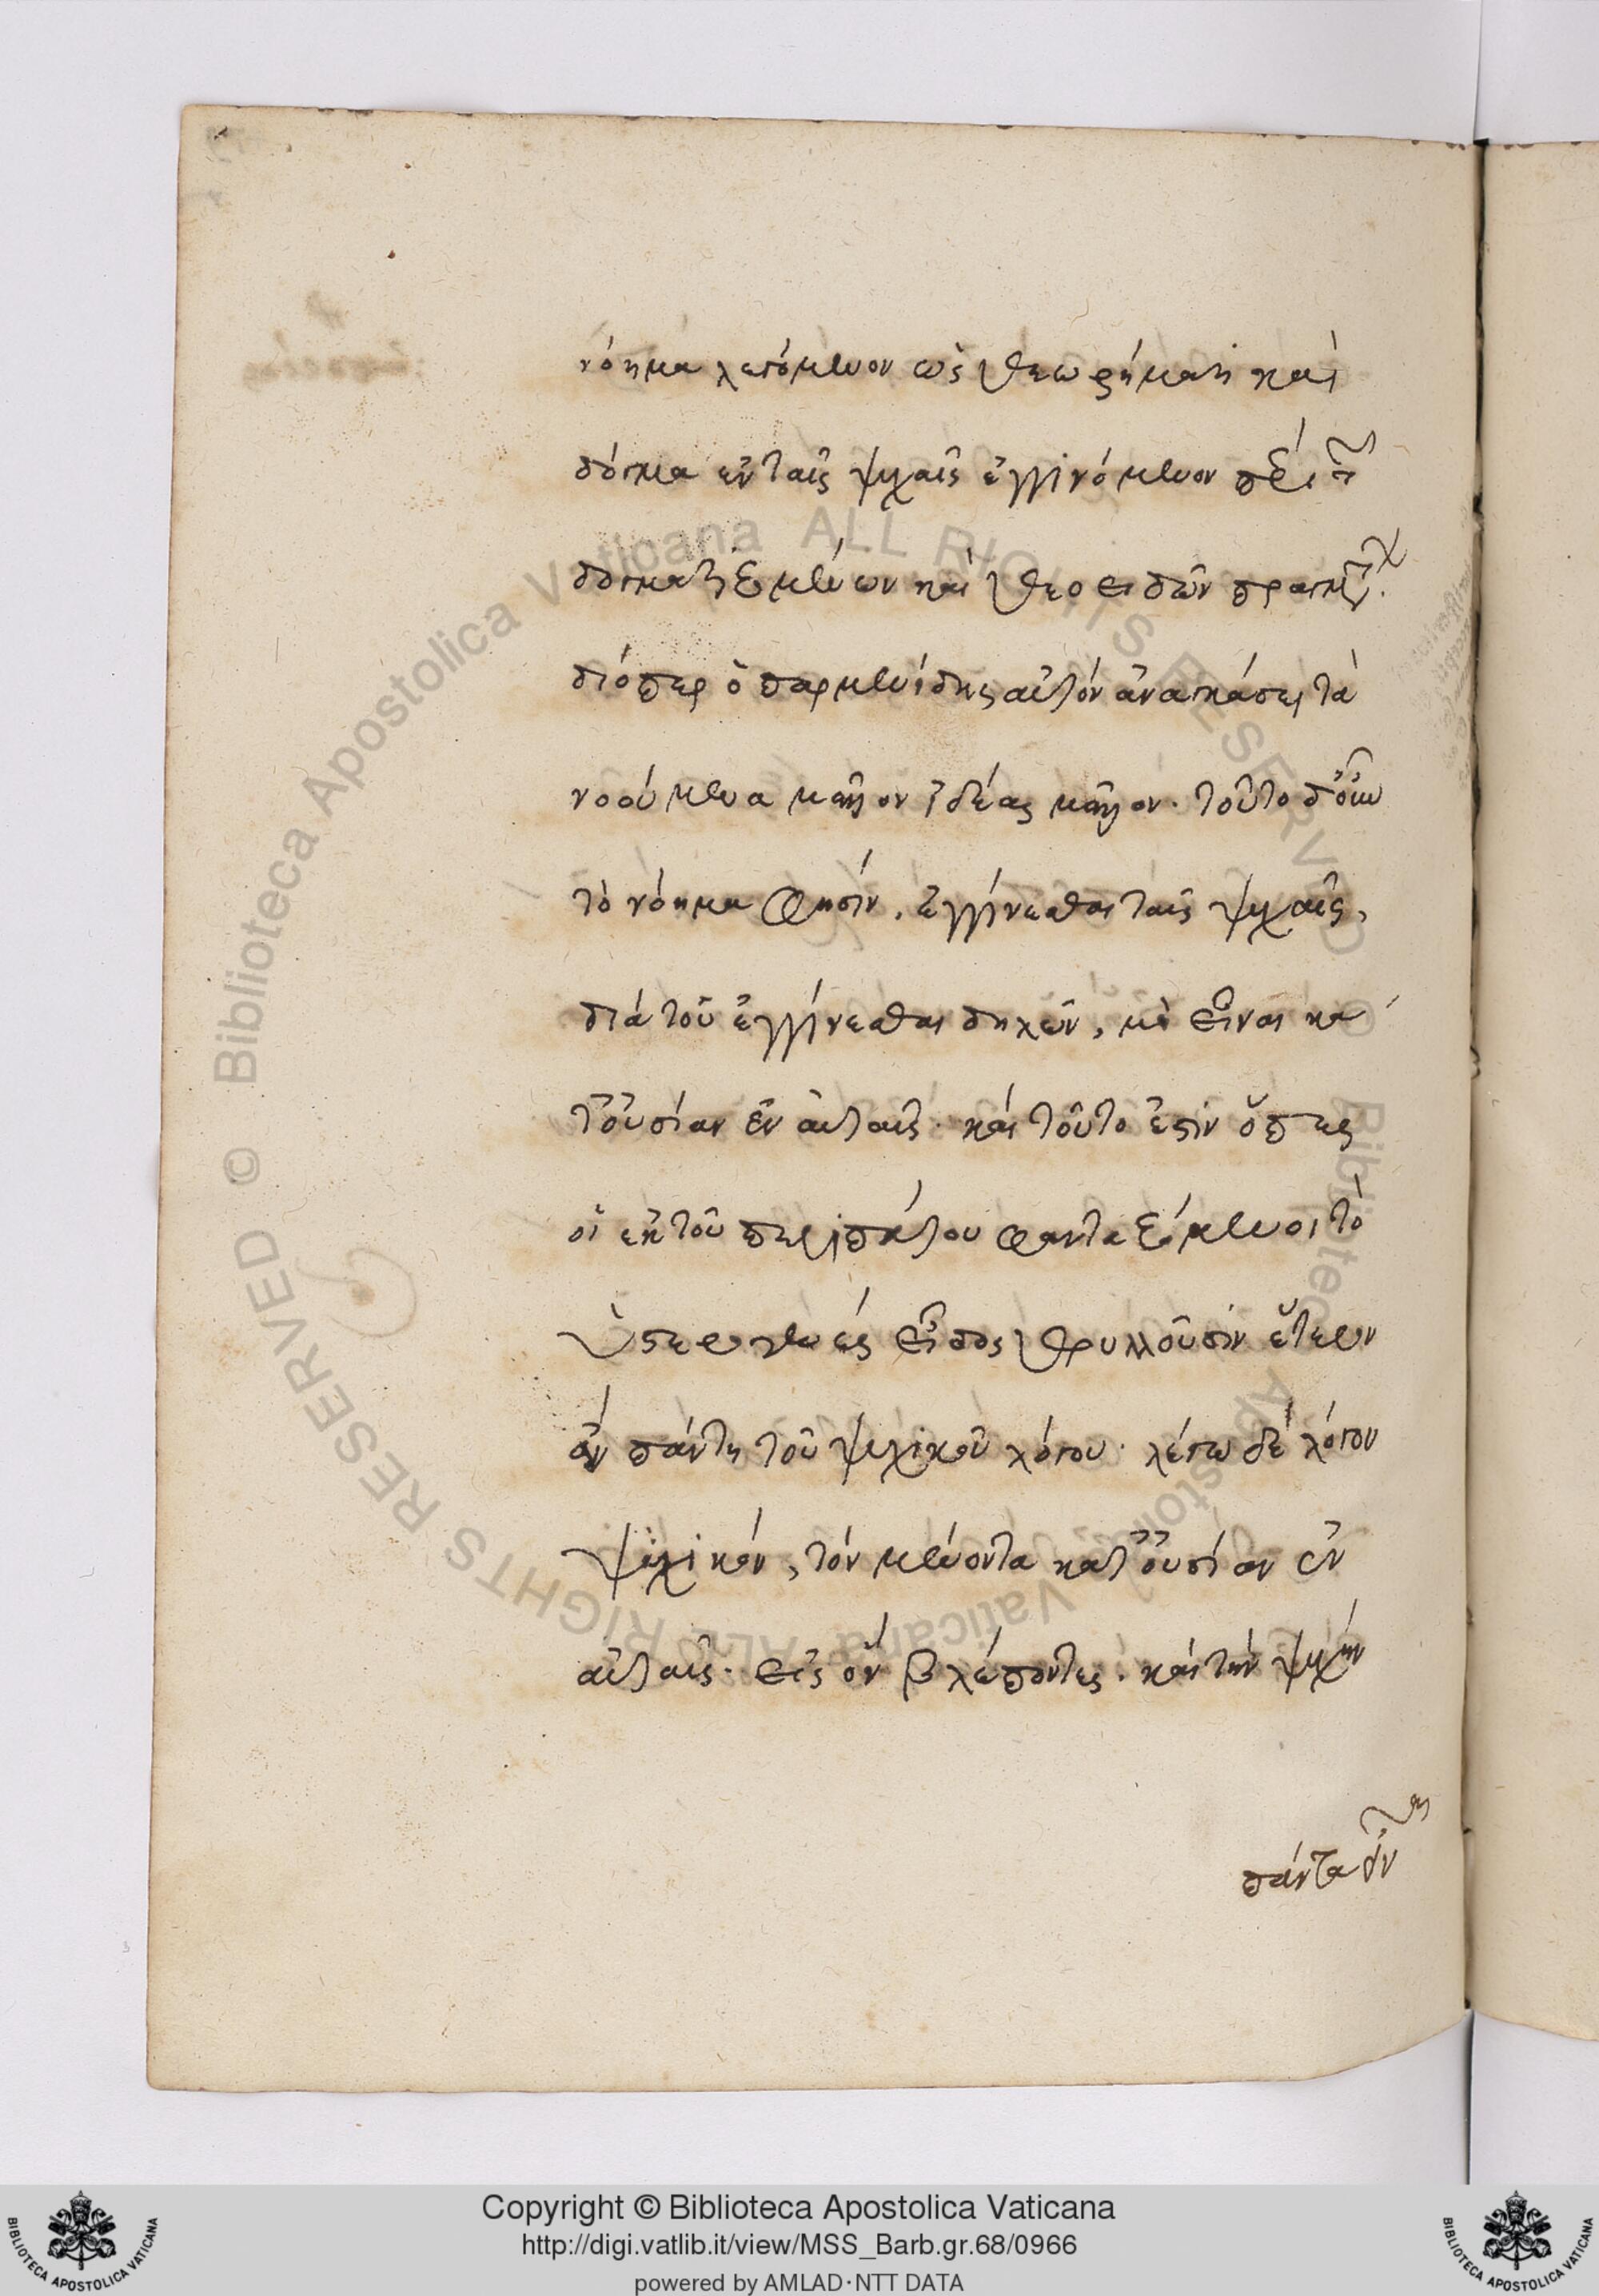 νόημα λεγόμενον ὡς θεωρήματι καὶ
δόγμα ἐν ταῖς ψυχαῖς ἐγγινόμενον περὶ τῶν
δογματιζομένων καὶ θεοειδῶν πραγμάτων.
διόπερ ὁ παρμενίδης αὐτὸν ἀναγκάσει τὰ
νοούμενα μᾶλλον ἰδέας μᾶλλον. τοῦτο δ' οὖν
τὸ νόημα φησὶν, ἐγγίνεσθαι ταῖς ψυχαῖς,
διὰ τοῦ ἐγγίνεσθαι δηλῶν, μὴ εἶναι κα
τ' οὐσίαν ἐν αὐταῖς. καὶ τοῦτο ἐστὶν ὅπερ
οἱ ἐκ τοῦ περιπάτου φανταζόμενοι τὸ
ὑστερογενὲς εἶδος θρυλλοῦσιν ἕτερον
ὂν πάντη τοῦ ψυχικοῦ λόγου. λέγω δὲ λόγον
ψυχικὸν, τὸν μένοντα κατ' οὐσίαν ἐν
αὐταῖς. εἰς ὃν βλέποντες. καὶ τὴν ψυχὴν
Copyright © Biblioteca Apostolica Vaticana
http://digi.vatlib.it/view/MSS_Barb.gr.68/0966
powered by AMLAD·NTT DATA
BIBLIOTECA APOSTOLICA VATICANA
BIBLIOTECA APOSTOLICA VATICANA
© Biblioteca Apostolica Vaticana ALL RIGHTS RESERVED
© Biblioteca Apostolica Vaticana ALL RIGHTS RESERVED